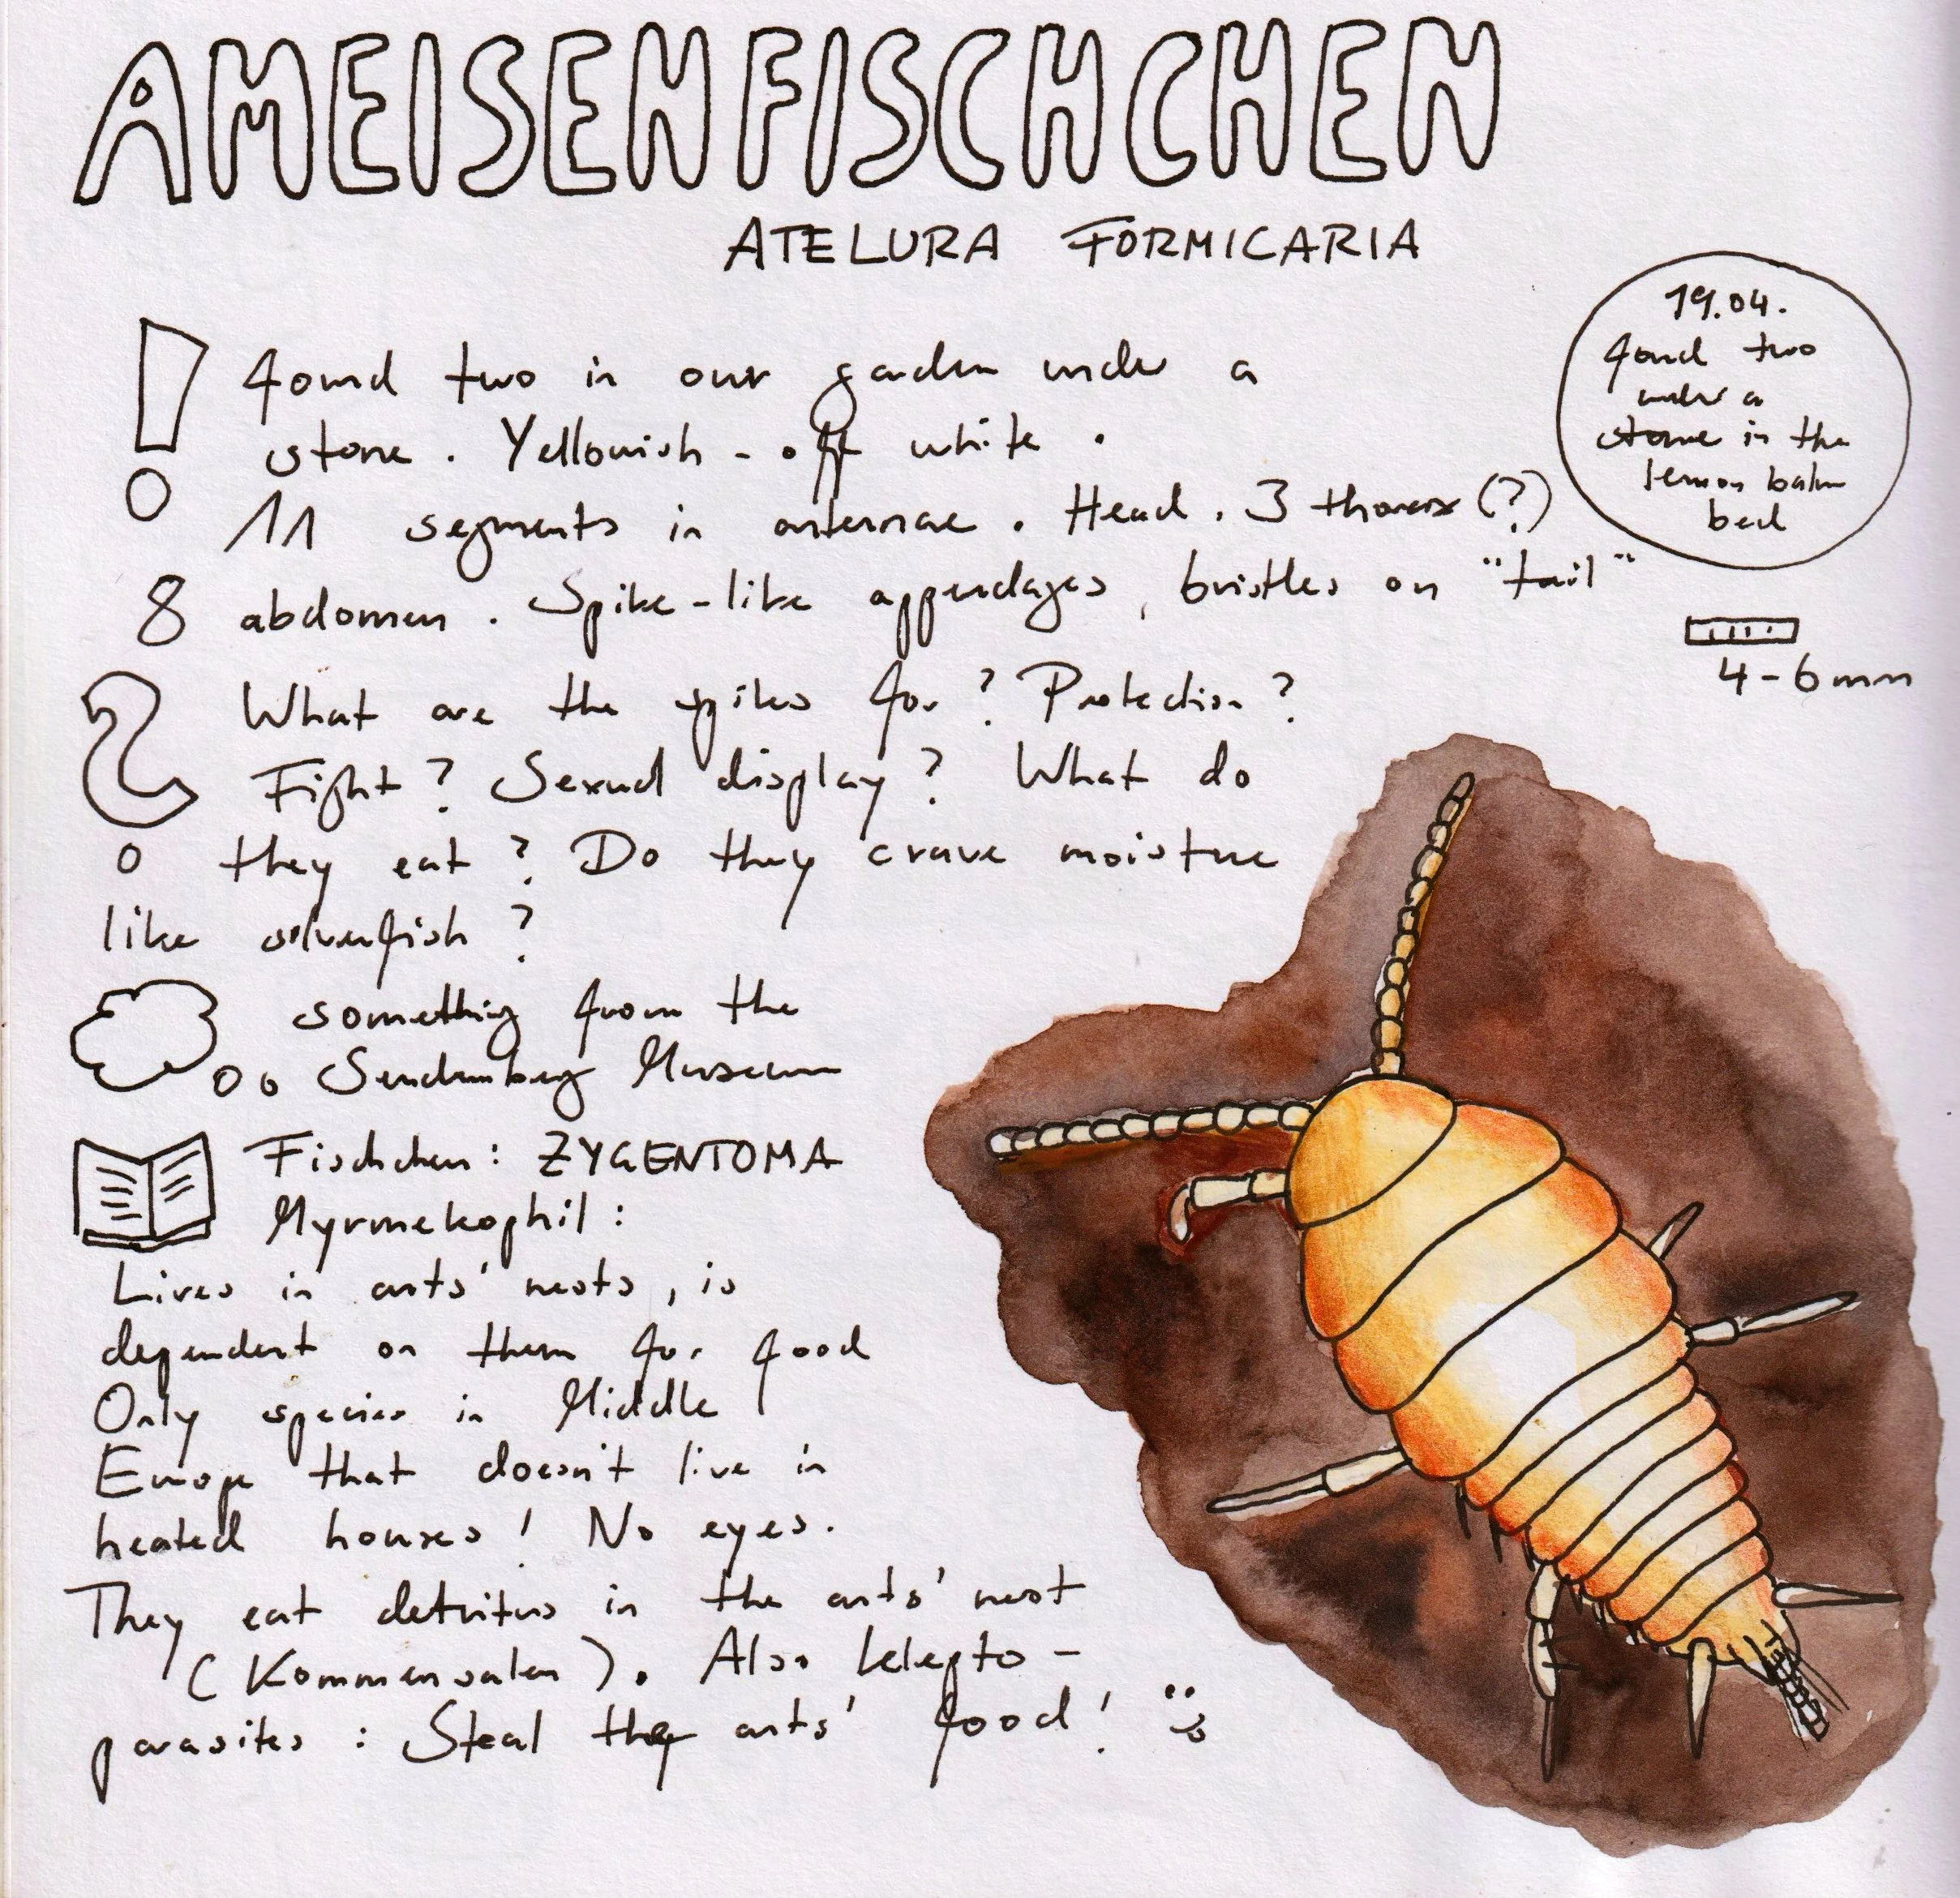 AMEISENFISCHCHEN
ATELURA FORMICARIA
19.04.
found two
under a
stone in the
lemon balm
bed
4-6mm
! found two in our garden under a
stone. Yellowish - off white.
11 segments in antennae. Head. 3 thorax (?)
8 abdomen. Spike-like appendages, bristles on "tail"
? What are the spikes for? Protection?
Fight? Sexual display? What do
they eat? Do they crave moisture
like silverfish?
something from the
Museum
Fischchen: ZYGENTOMA
Myrmekophil:
Lives in ants' nests, is
dependent on them for food
Only species in Middle
Europe that doesn't live in
heated houses! No eyes.
They eat detritus in the ants' nest
(Kommensalen). Also klepto-
parasites: Steal the ants' food! :)